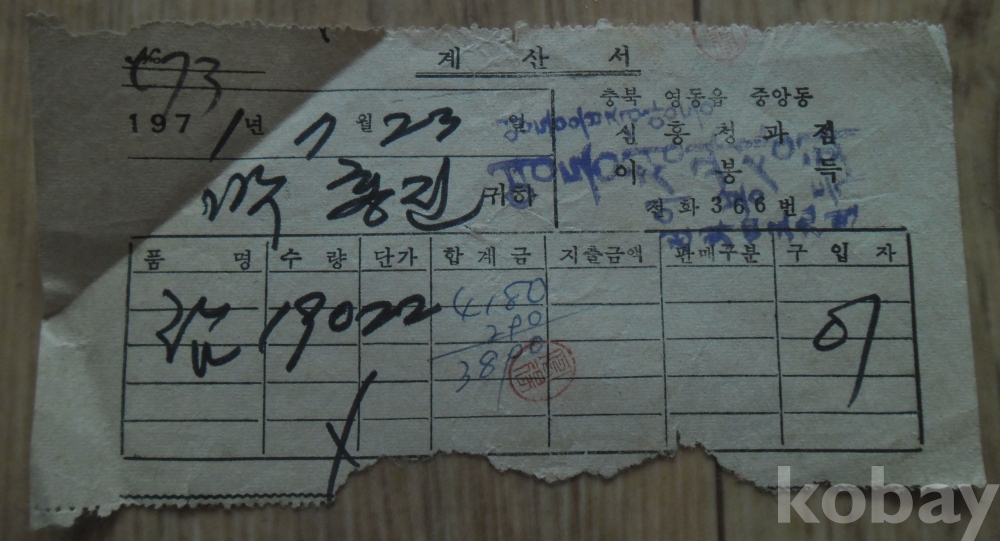 계 산 서
No 73
1971년 7월 23일
박홍진 귀하
충북 영동읍 중앙동
심흥청과점
이 봉 득
전화 366번
품 명 수 량 단가 합계금 지출금액 판매구분 구 입 자
190 22 4180 이
290
3890
kobay